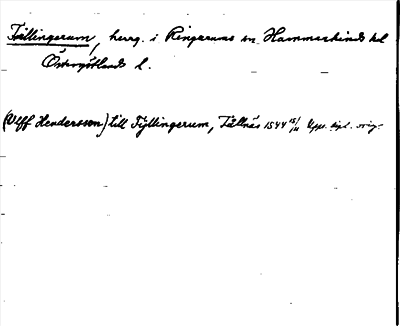 Fällingerum, herrg. i Ringarums sn. Hammarkinds hd
Östergötlands l.
(Ulff Hendersson) till Fyllingerum, Fällnäs 1544 15/11 Upps. dipl. orig.